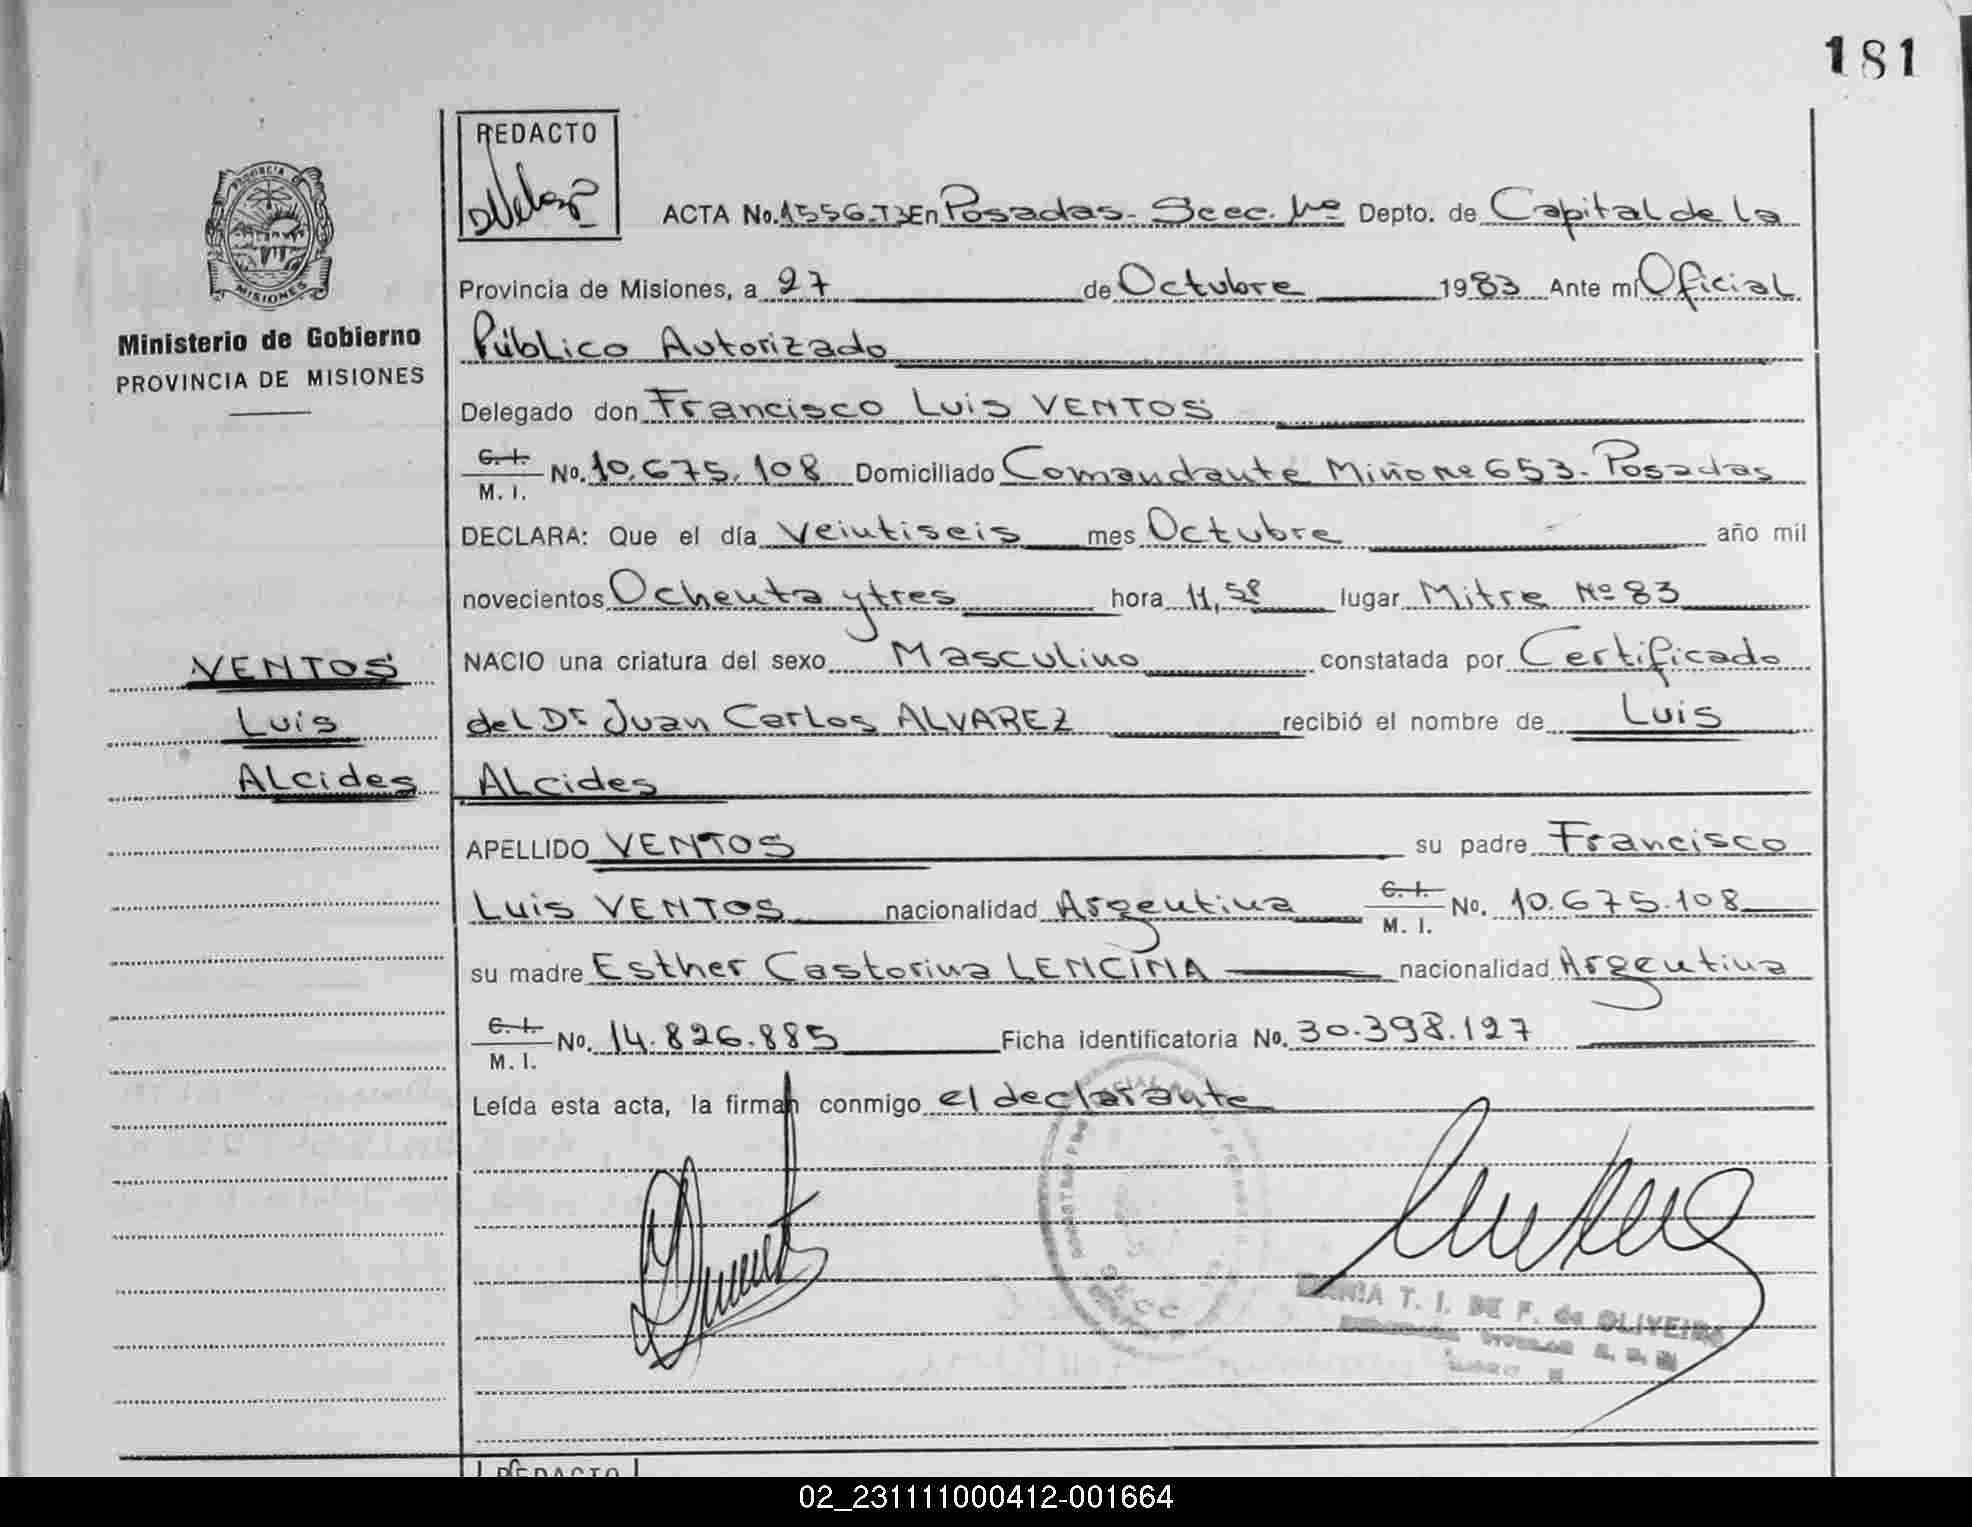 181
REDACTO
PROVINCIA DE
MISIONES
Ministerio de Gobierno
PROVINCIA DE MISIONES
ACTA No. 1556-T3 En Posadas. Secc. 1ª Depto. de Capital de la
Provincia de Misiones, a 27 de Octubre 1983 Ante mi Oficial
Público Autorizado
Delegado don Francisco Luis VENTOS
C. I.
M. I. No. 10.675.108 Domiciliado Comandante Miño Nº 653. Posadas
DECLARA: Que el día veintiseis mes Octubre año mil
novecientos Ochenta y tres hora 11,58 lugar Mitre Nº 83
VENTOS
Luis
Alcides
NACIO una criatura del sexo Masculino constatada por Certificado
del Dr Juan Carlos ALVAREZ recibió el nombre de Luis
Alcides
APELLIDO VENTOS su padre Francisco
Luis VENTOS nacionalidad Argentina C. I.
M. I. No. 10.675.108
su madre Esther Castorina LENCINA nacionalidad Argentina
C. I.
M. I. No. 14.826.885 Ficha identificatoria No. 30.398.127
Leída esta acta, la firman conmigo el declarante
MARIA T. I. DE F. de OLIVEIRA
REDACTO
02_231111000412-001664